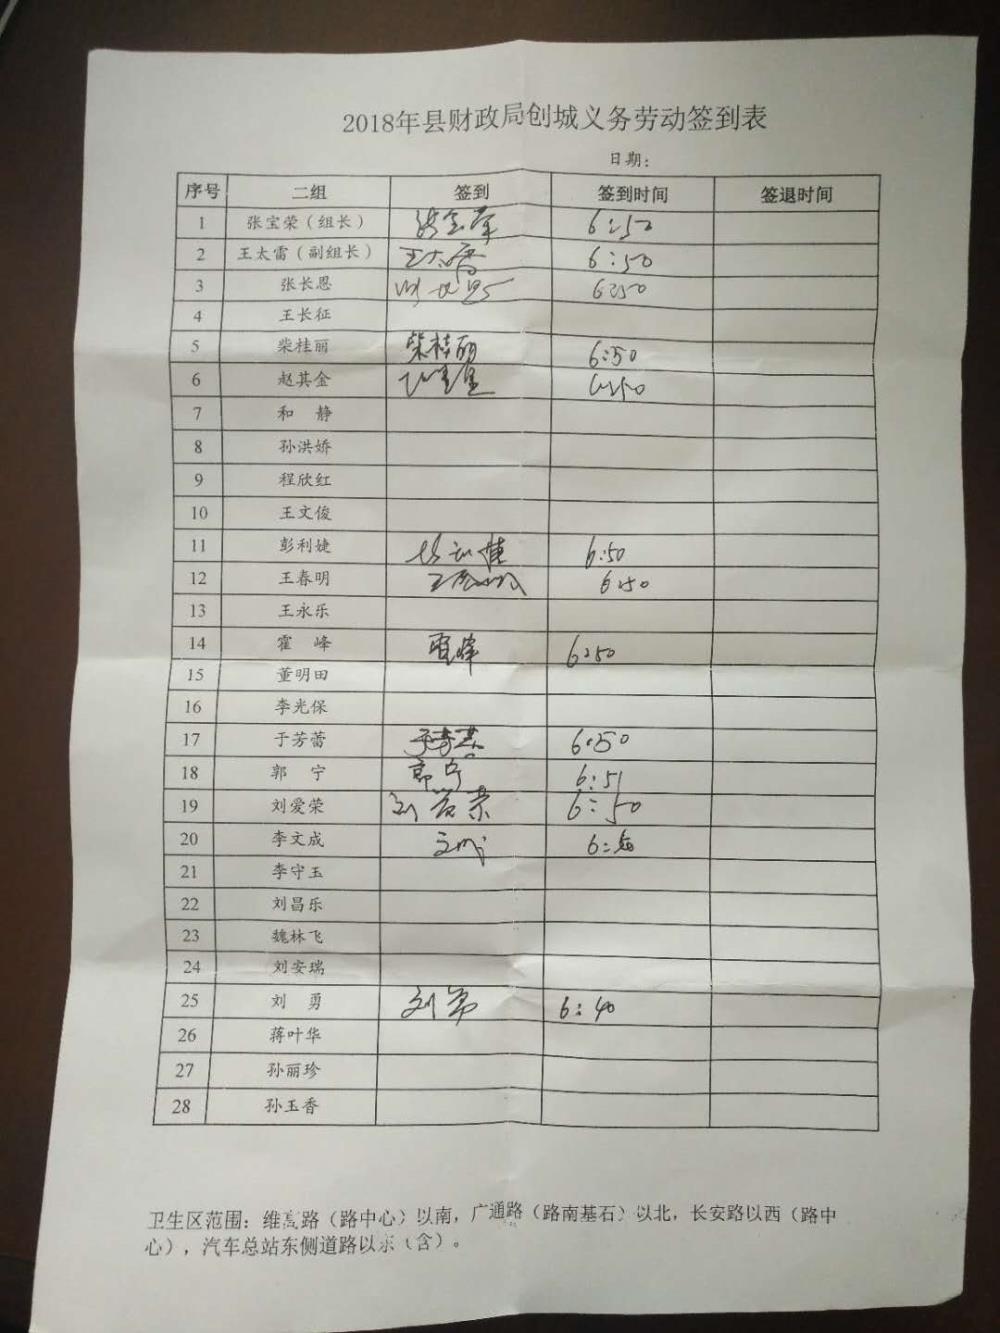 2018年县财政局创城义务劳动签到表
日期：
序号 二组 签到 签到时间 签退时间
1 张宝荣（组长） 张宝荣 6:50
2 王太雷（副组长） 王太雷 6:50
3 张长恩 6:50
4 王长征
5 柴桂丽 柴桂丽 6:50
6 赵其金 6:50
7 和 静
8 孙洪娇
9 程欣红
10 王文俊
11 彭利婕 6:50
12 王春明 王春明 6:50
13 王永乐
14 霍 峰 霍峰 6:50
15 董明田
16 李光保
17 于芳蕾 于芳蕾 6:50
18 郭 宁 郭宁 6:51
19 刘爱荣 刘爱荣 6:50
20 李文成 文成
21 李守玉
22 刘昌乐
23 魏林飞
24 刘安瑞
25 刘 勇 刘勇 6:40
26 蒋叶华
27 孙丽珍
28 孙玉香
卫生区范围：维高路（路中心）以南，广通路（路南基石）以北，长安路以西（路中
心），汽车总站东侧道路以东（含）。